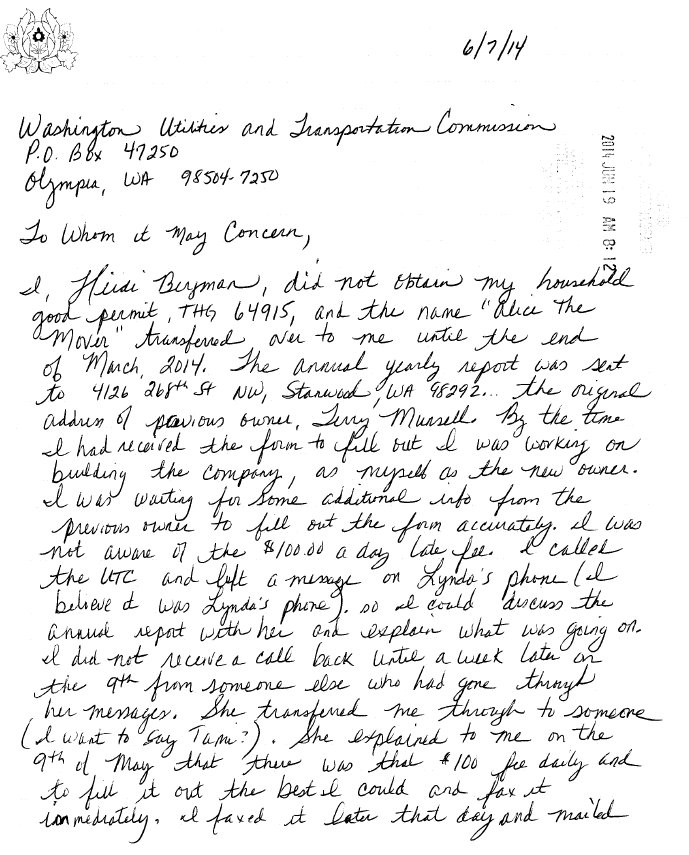 6/7/14
Washington Utilities and Transportation Commission
P.O. Box 47250
Olympia, WA 98504-7250
2014 JUN 19 AM 8:12
To Whom it May Concern,
I, Heidi Bergman, did not obtain my household
good permit, THG 64915, and the name "Alice The
Mover" transferred over to me until the end
of March, 2014. The annual yearly report was sent
to 4126 268th St NW, Stanwood, WA 98292... the original
address of previous owner, Terry Munsell. By the time
I had received the form to fill out I was working on
building the company, as myself as the new owner.
I was waiting for some additional info from the
previous owner to fill out the form accurately. I was
not aware of the $100.00 a day late fee. I called
the UTC and left a message on Lynda's phone (I
believe it was Lynda's phone). so I could discuss the
annual report with her and explain what was going on.
I did not receive a call back until a week later on
the 9th from someone else who had gone through
her messages. She transferred me through to someone
(I want to say Tami?). She explained to me on the
9th of May that there was that $100 fee daily and
to fill it out the best I could and fax it
immediately. I faxed it later that day and mailed